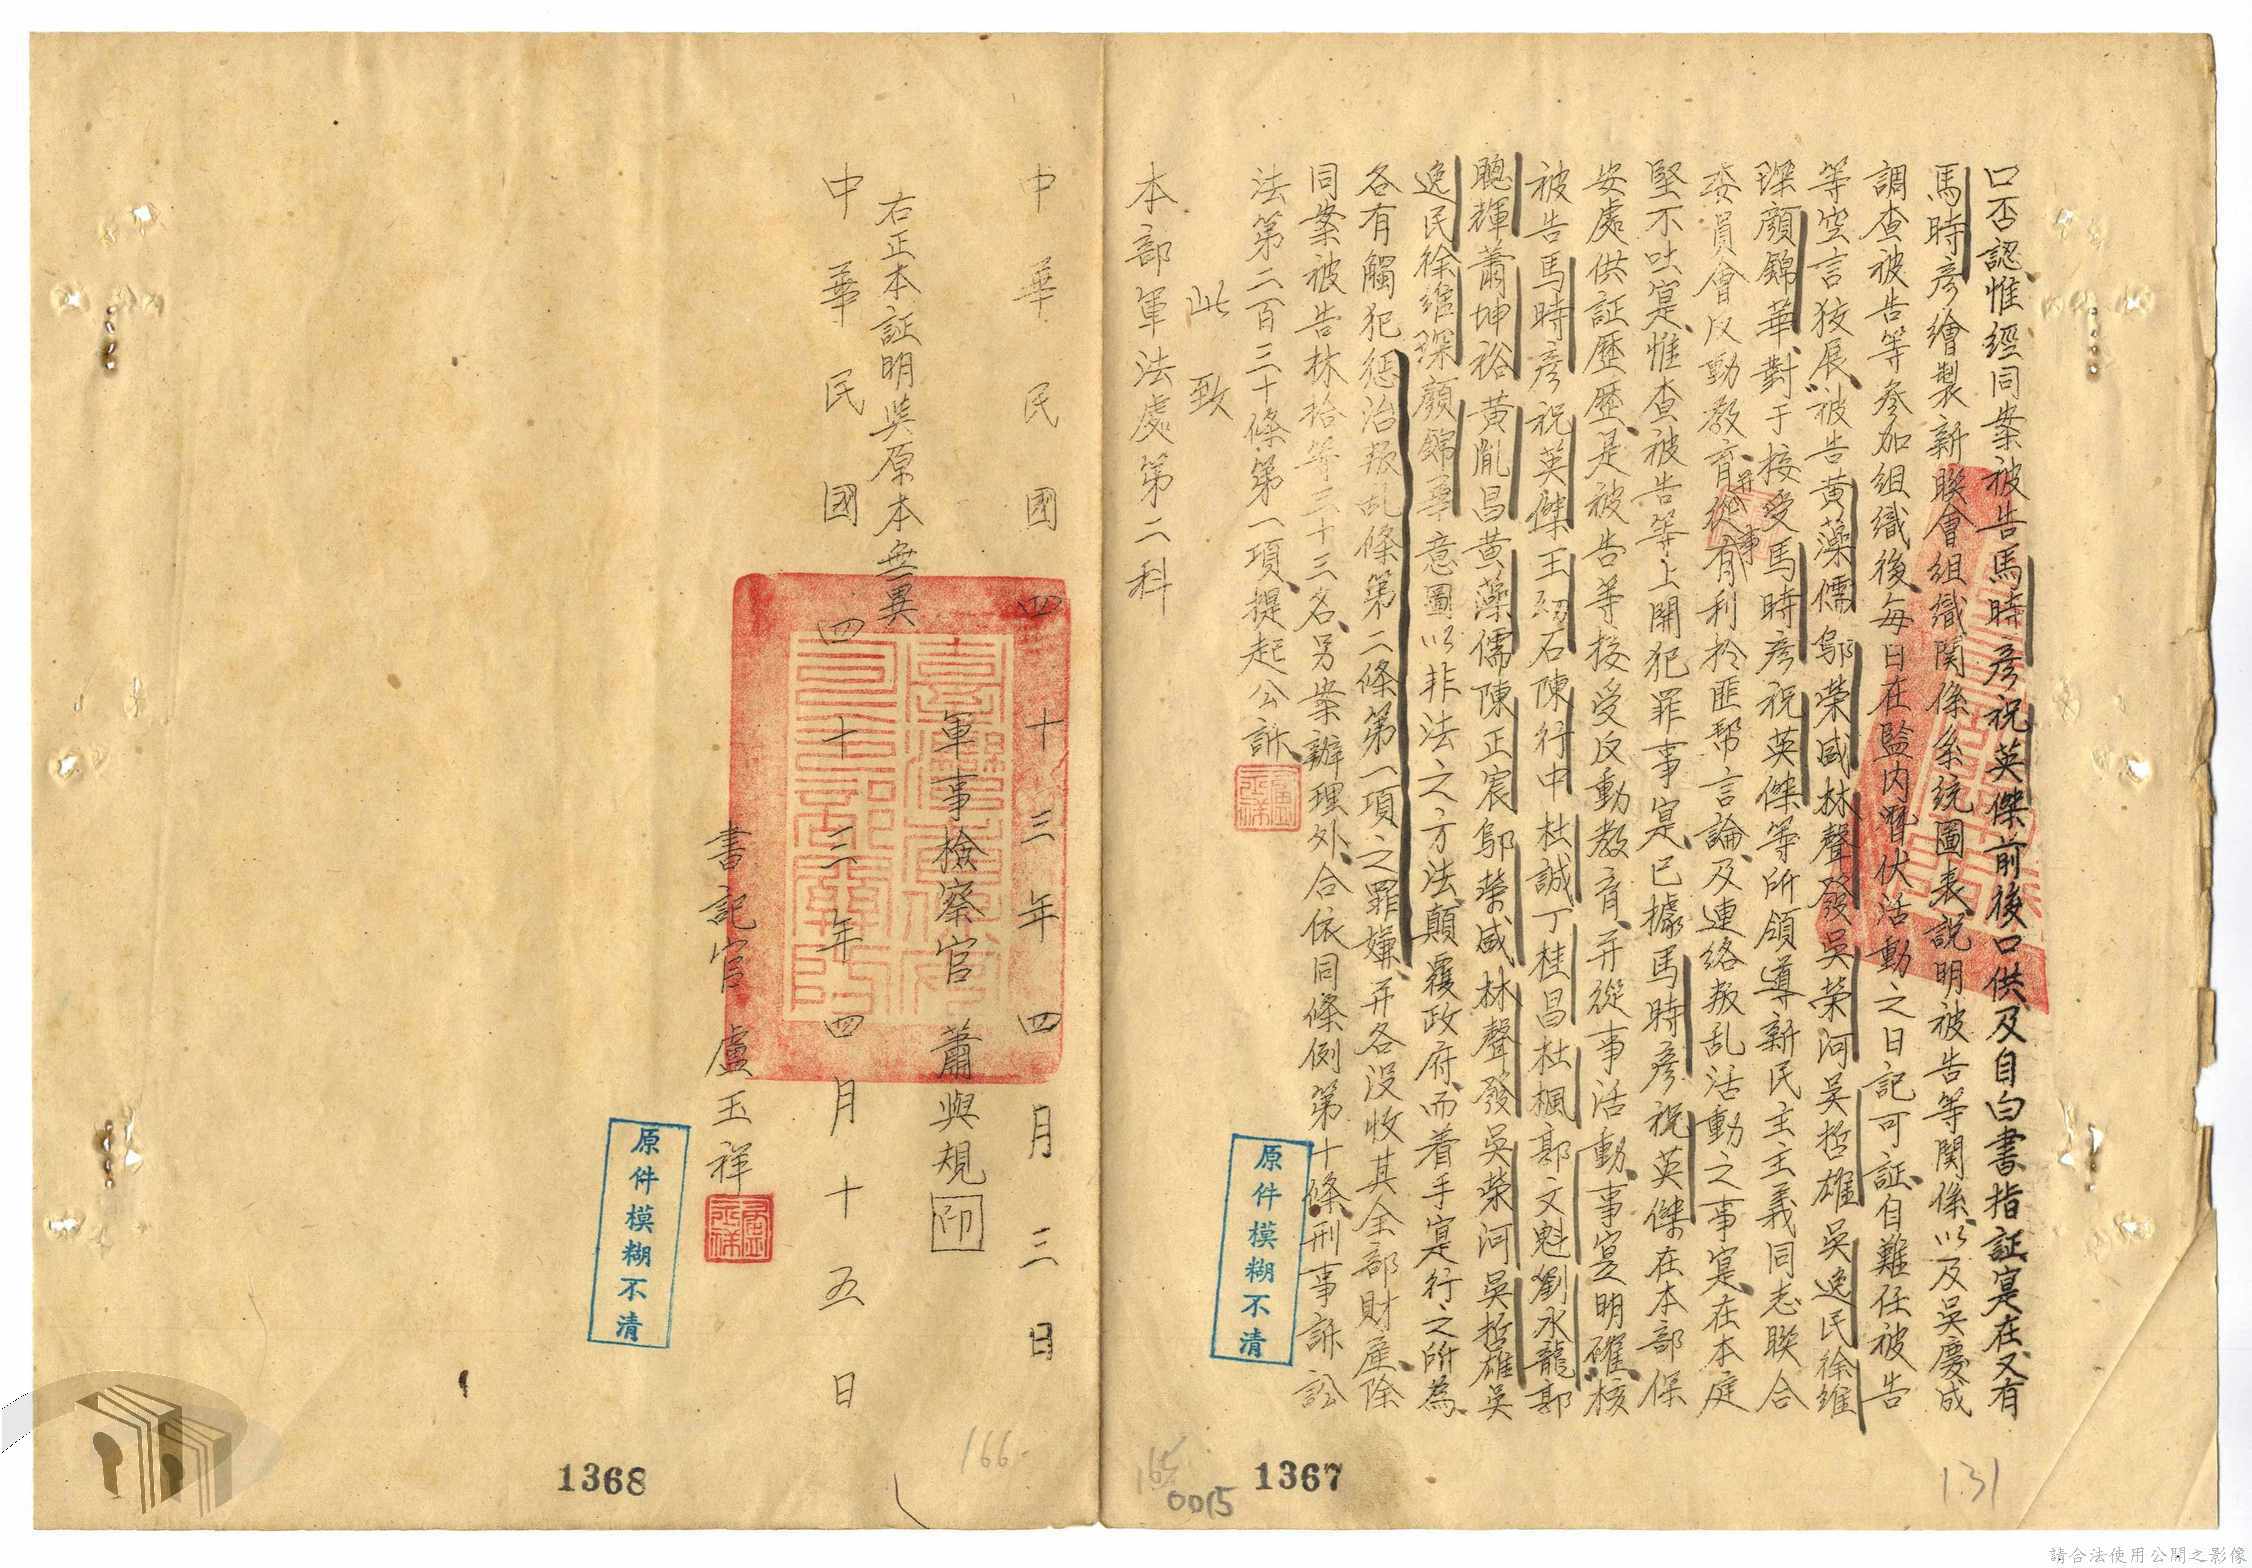 口否認、惟經同案被告馬時彥祝英傑前後口供及自白書指証寔在、又有
馬時彥繪製新聯會組織関係系統圖表説明被告等関係、以及吳慶成
調查被告等參加組織後、每日在監內潛伏活動之日記可証、自難任被告
等空言狡展、被告黃藻儒鄔榮咸林聲發吳榮河吳哲雄吳逸民徐維
琛顏錦華、對于接受馬時彥祝英傑等所領導新民主主義同志聯合
委員會反動教育、并從事有利於匪幇言論、及連絡叛乱活動之事寔、在本庭
堅不吐寔、惟查被告等上開犯罪事寔、已據馬時彥祝英傑在本部保
安處供証歷歷、是被告等接受反動教育、并從事活動、事寔明確、核
被告馬時彥祝英傑王紉石陳行中杜誠丁桂昌杜楓郭文魁劉永龍郭
聰輝蕭坤裕黃胤昌黃藻儒陳正宸鄔榮咸林聲發吳榮河吳哲雄吳
逸民徐維琛顏錦華意圖以非法之方法、顛覆政府、而着手寔行之所為、
各有觸犯懲治叛乱條第二條第一項之罪嫌、并各沒收其全部財産、除
同案被告林拾等三十三名、另案辦理外、合依同條例第十條、刑事訴訟
法第二百三十條第一項、提起公訴、
此致
本部軍法處第二科
中華民國四十三年四月三日
軍事檢察官 蕭與規 印
右正本証明與原本無異
中華民國四十三年四月十五日
書記官 盧玉祥
原件模糊不清
原件模糊不清
1367
1368
131
166
0015
請合法使用公開之影像